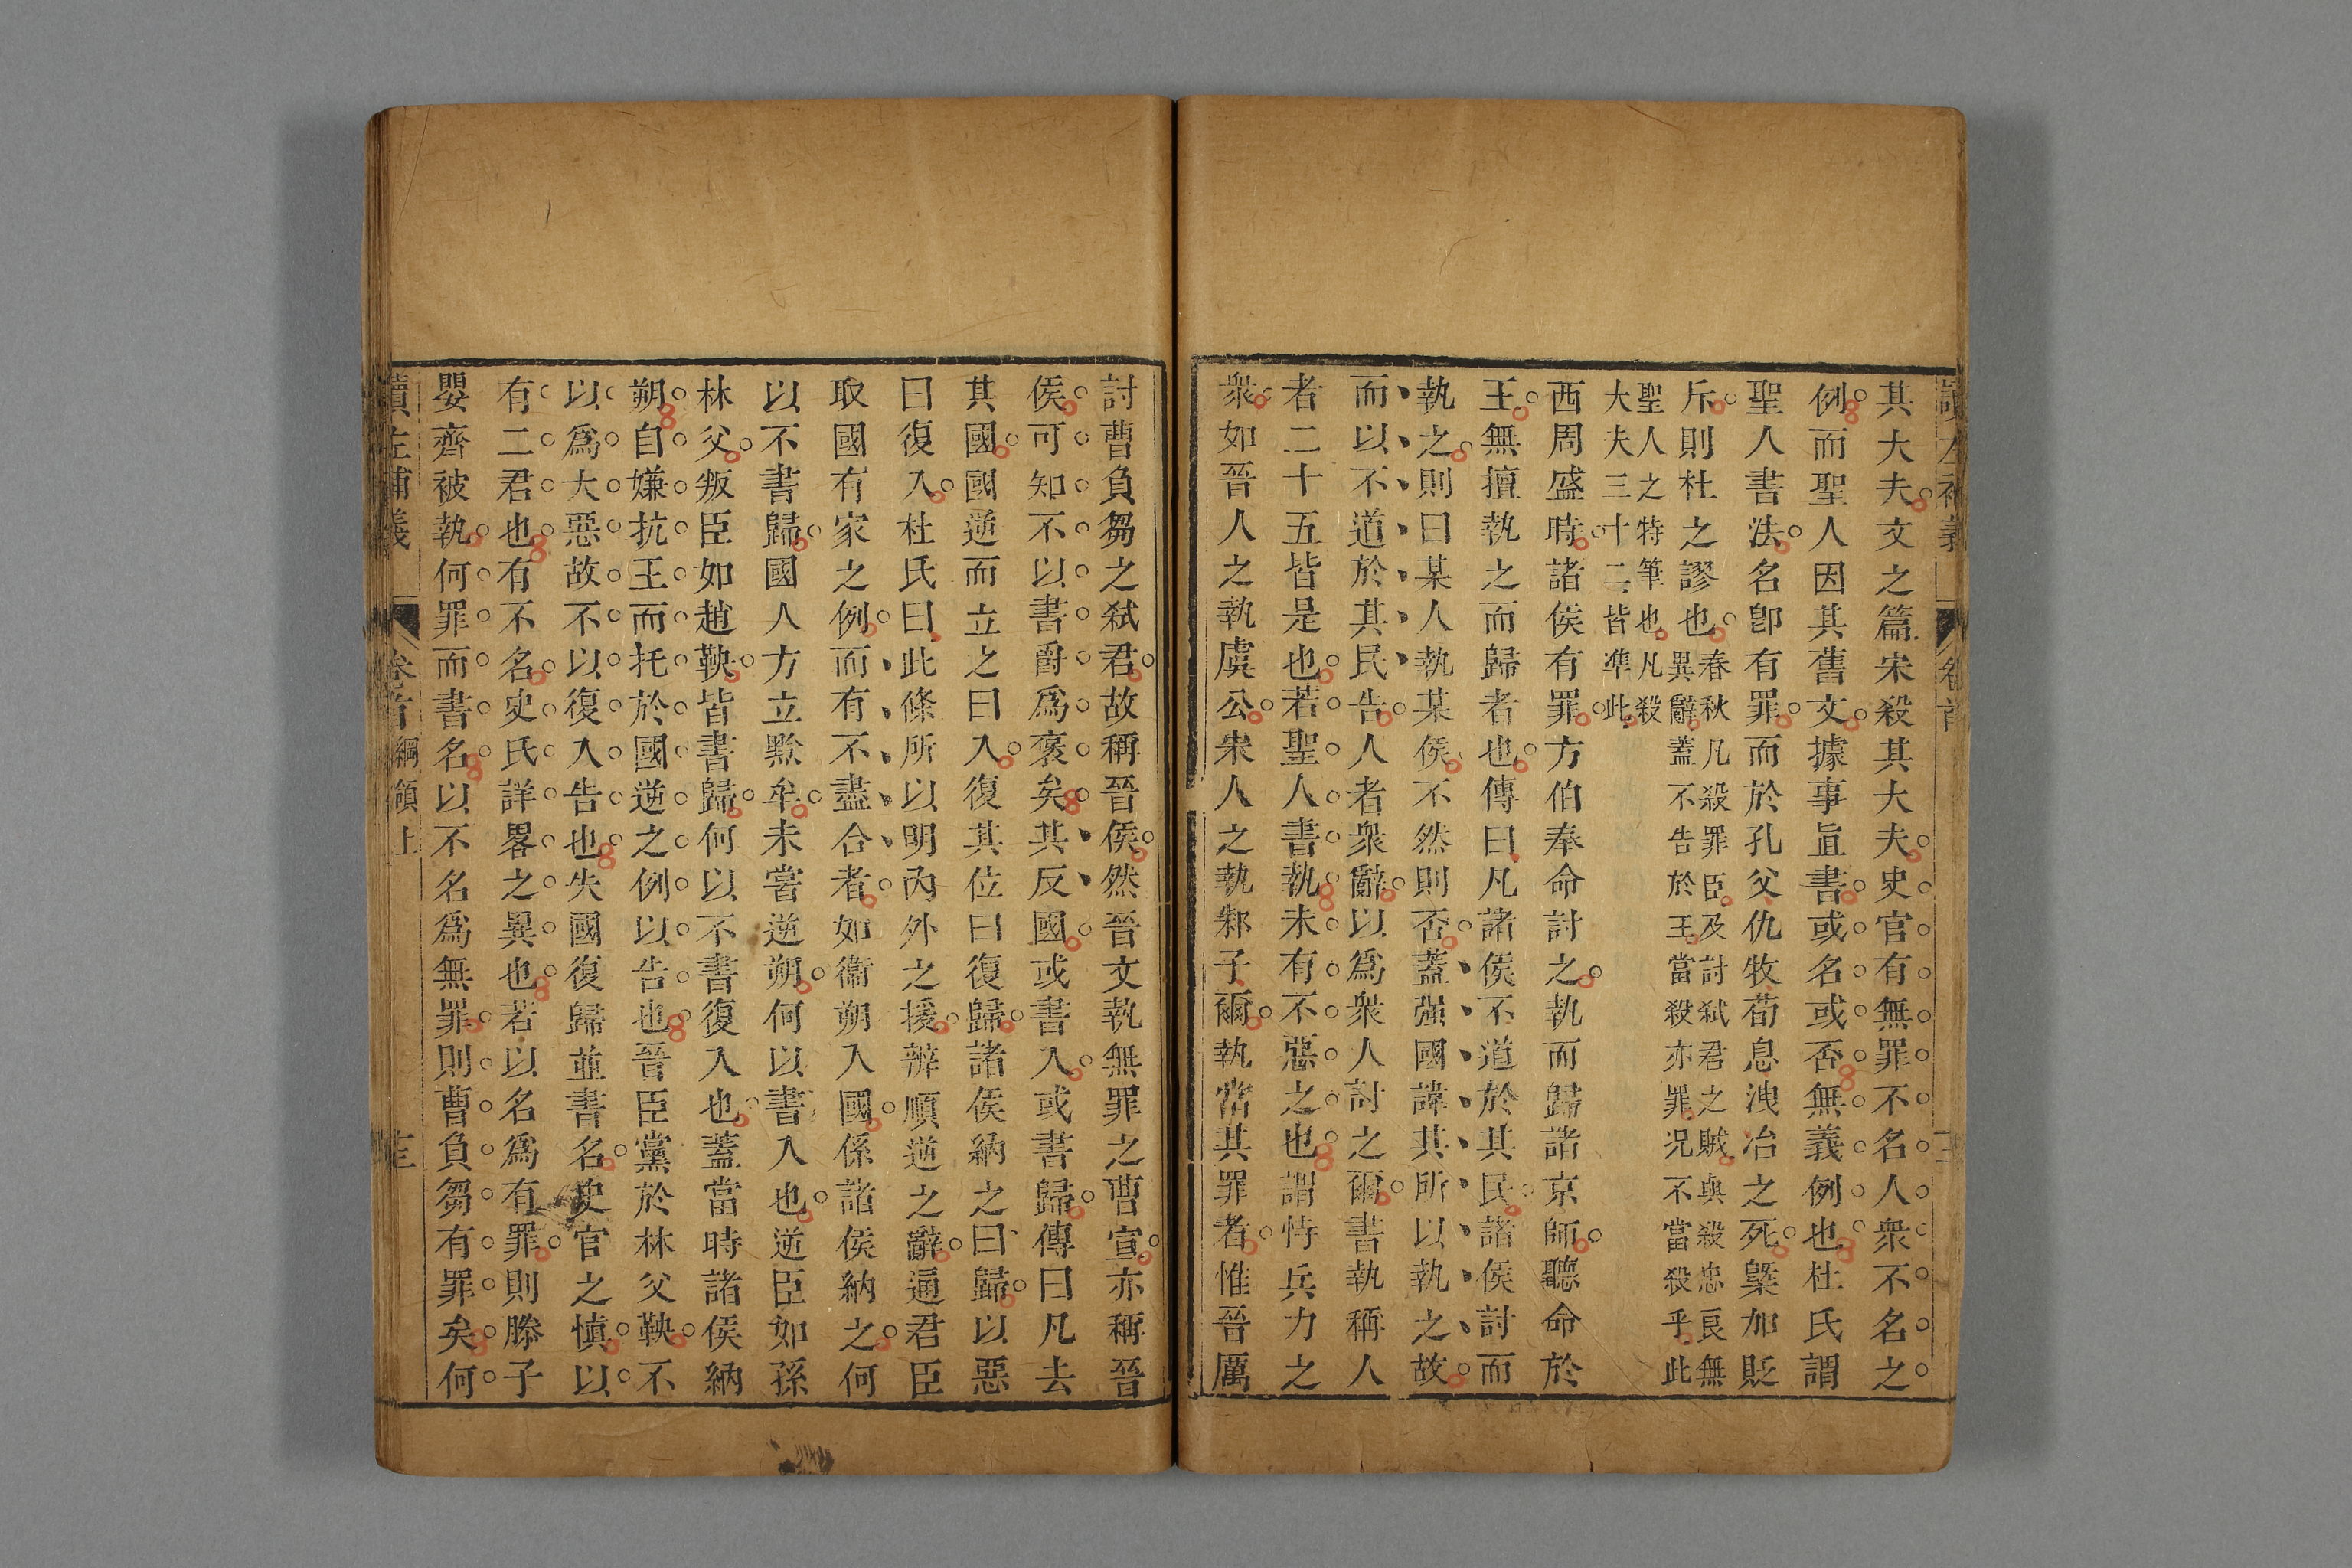 其大夫文之篇宋殺其大夫史官有無罪不名人衆不名之
例而聖人因其舊文據事直書或名或否無義例也杜氏謂
聖人書法名卽有罪而於孔父仇牧荀息洩冶之死槩加貶
斥則杜之謬也春秋凡殺罪臣及討弑君之賊與殺忠良無
異辭蓋不告於王當殺亦罪況不當殺乎此
聖人之特筆也凡殺
大夫三十二皆準此
西周盛時諸侯有罪方伯奉命討之執而歸諸京師聽命於
王無擅執之而歸者也傳曰凡諸侯不道於其民諸侯討而
執之則曰某人執某侯不然則否蓋强國諱其所以執之故
而以不道於其民告人者衆辭以爲衆人討之爾書執稱人
者二十五皆是也若聖人書執未有不惡之也謂恃兵力之
衆如晉人之執虞公宋人之執邾子爾執當其罪者惟晉厲
討曹負芻之弑君故稱晉侯然晉文執無罪之曹宣亦稱晉
侯可知不以書爵爲褒矣其反國或書入或書歸傳曰凡去
其國國逆而立之曰入復其位曰復歸諸侯納之曰歸以惡
曰復入杜氏曰此條所以明內外之援辨順逆之辭通君臣
取國有家之例而有不盡合者如衞朔入國係諸侯納之何
以不書歸國人方立黔牟未嘗逆朔何以書入也逆臣如孫
林父叛臣如趙鞅皆書歸何以不書復入也蓋當時諸侯納
朔自嫌抗王而托於國逆之例以告也晉臣黨於林父鞅不
以爲大惡故不以復入告也失國復歸並書名史官之愼以
有二君也有不名史氏詳畧之異也若以名爲有罪則滕子
嬰齊被執何罪而書名以不名爲無罪則曹負芻有罪矣何
讀左補義
卷首
綱領上